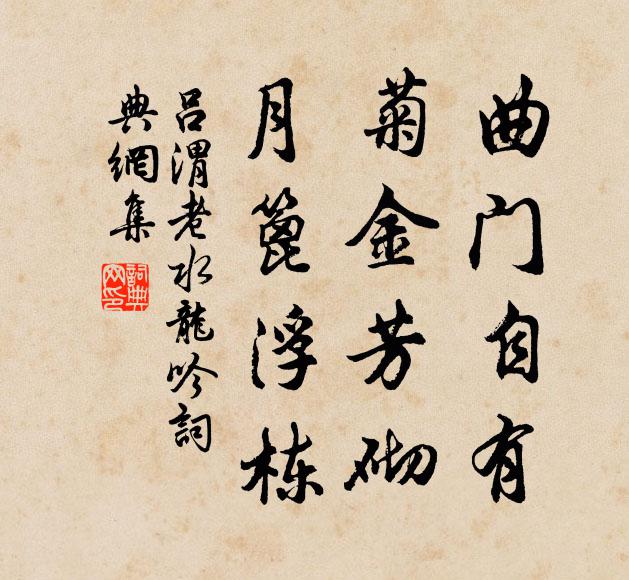 曲门自有
菊金芳砌
月篦浮栋
吕渭老水龍吟詞
典網集
詞典网印